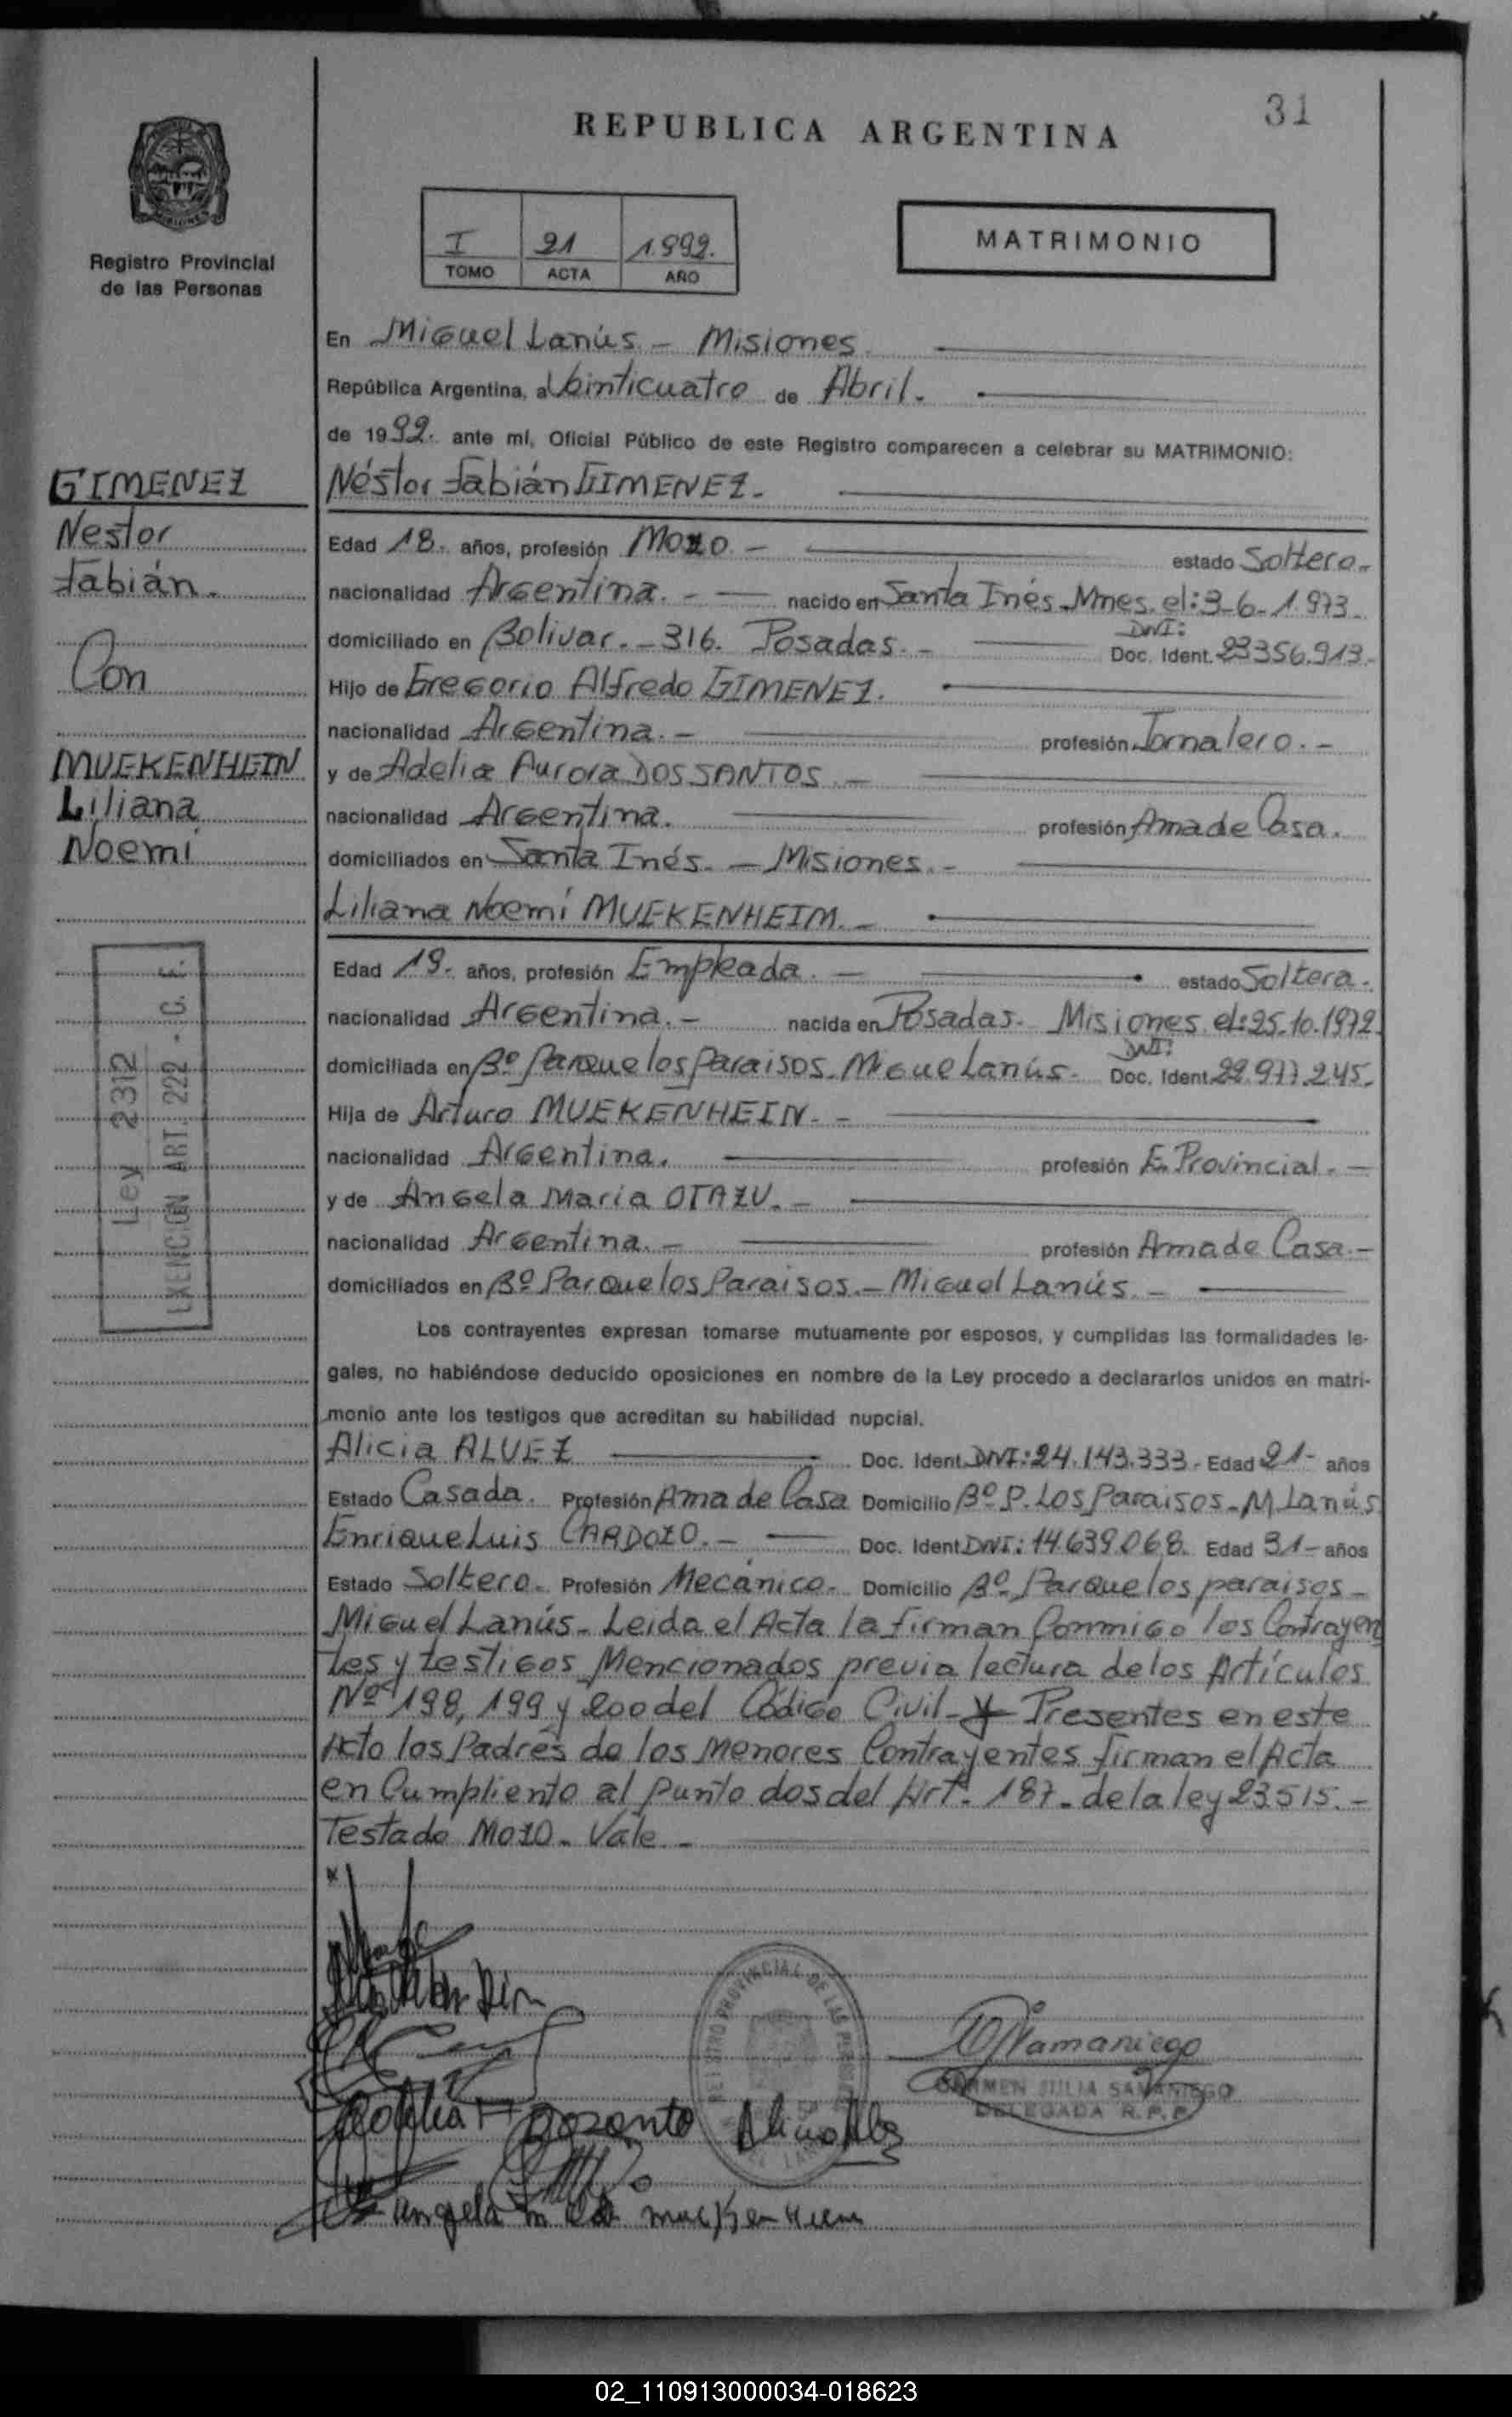 31
REPUBLICA ARGENTINA
Registro Provincial
de las Personas
I 21 1.992.
TOMO ACTA AÑO
MATRIMONIO
En Miguel Lanús - Misiones.
República Argentina, a Veinticuatro de Abril.
de 1992. ante mí, Oficial Público de este Registro comparecen a celebrar su MATRIMONIO:
GIMENEZ
Nestor
Fabián.
Con
MUEKENHEIN
Liliana
Noemí
Néstor Fabián GIMENEZ.
Edad 18. años, profesión Mozo. - estado Soltero.-
nacionalidad Argentina. - nacido en Santa Inés. Mnes. el: 3-6-1.973.
domiciliado en Bolivar. - 316. Posadas. - DNI: Doc. Ident. 23356.913.-
Hijo de Gregorio Alfredo GIMENEZ.
nacionalidad Argentina. - profesión Jornalero. -
y de Adelia Aurora DOS SANTOS. -
nacionalidad Argentina. profesión Ama de Casa.
domiciliados en Santa Inés. - Misiones. -
Liliana Noemí MUEKENHEIM. -
Edad 19. años, profesión Empleada. - estado Soltera.
nacionalidad Argentina. - nacida en Posadas. Misiones. el: 25.10.1972.
domiciliada en Bº Parque los Paraisos. Migue Lanús. DNI: Doc. Ident. 22.977.245.
Hija de Arturo MUEKENHEIN. -
nacionalidad Argentina. profesión E. Provincial. -
y de Angela Maria OTAZU. -
nacionalidad Argentina. - profesión Ama de Casa. -
domiciliados en Bº Parque los Paraisos. - Miguel Lanús. -
Ley 2312
EXENCION ART. 222 - C. F.
Los contrayentes expresan tomarse mutuamente por esposos, y cumplidas las formalidades le-
gales, no habiéndose deducido oposiciones en nombre de la Ley procedo a declararlos unidos en matri-
monio ante los testigos que acreditan su habilidad nupcial.
Alicia ALVEZ Doc. Ident. DNI: 24.143.333. Edad 21- años
Estado Casada. Profesión Ama de Casa Domicilio Bº P. Los Paraisos. M Lanús
Enrique Luis CARDOZO. - Doc. Ident DNI: 14.639.068. Edad 31- años
Estado Soltero. Profesión Mecánico. Domicilio Bº Parque los paraisos -
Miguel Lanús. Leida el Acta la firman Conmigo los Contrayen
tes y testigos Mencionados previa lectura de los Artículos
Nº 198, 199 y 200 del Código Civil - Presentes en este
Acto los Padres de los Menores Contrayentes firman el Acta
en Cumpliento al punto dos del Art. 187. de la ley 23515. -
Testado Mozo. Vale -
REGISTRO PROVINCIAL DE LAS PERSONAS
CARMEN JULIA SAMANIEGO
DELEGADA R.P.P.
02_110913000034-018623